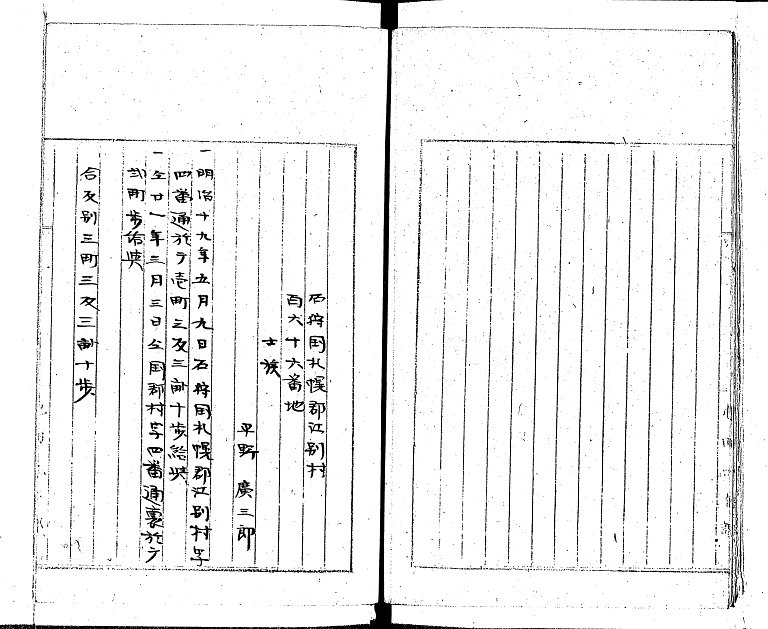 石狩国札幌郡江別村
百六十六番地
士族
平野廣三郎
一明治十九年五月九日石狩国札幌郡江別村字
四番通於テ壱町三反三畝十歩給典
一仝廿一年三月三日仝国郡村字四番通裏於テ
弐町歩給典
合反別三町三反三畝十歩